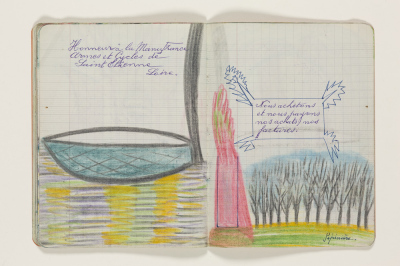 Honneur à la Manufrance
Armes et Cycles de
Saint Etienne
Loire.
Nous achetons
et nous payons
nos achats, nos
factures.